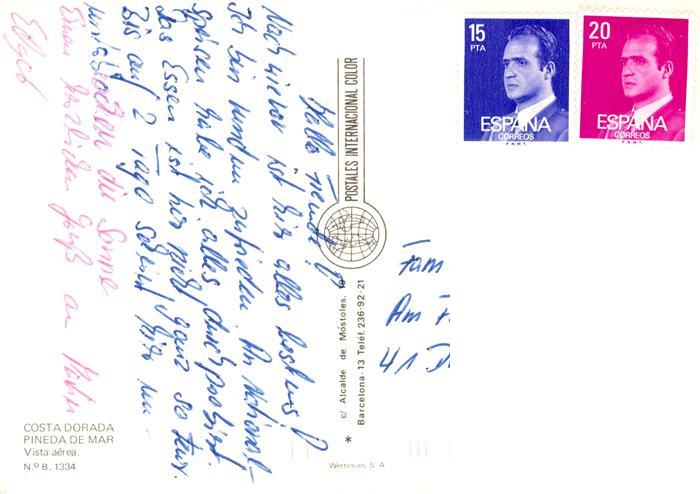 Hallo Freunde!
Nach wie vor ist hier alles bestens!
Ich bin rundum zufrieden. An National-
speisen habe ich alles durchprobiert.
das Essen ist hier nicht ganz so teuer.
Bis auf 2 Tage scheint hier un-
unterbrochen die Sonne
Einen herzlichen Gruß an
Fam
Am F
41 D
15
PTA
ESPAÑA
CORREOS
F.N.M.T.
20
PTA
ESPAÑA
CORREOS
F.N.M.T.
POSTALES INTERNACIONAL COLOR
c/ Alcalde de Móstoles, 1
Barcelona-13 Teléf. 236-92-21
COSTA DORADA
PINEDA DE MAR
Vista aérea.
N.º B. 1334